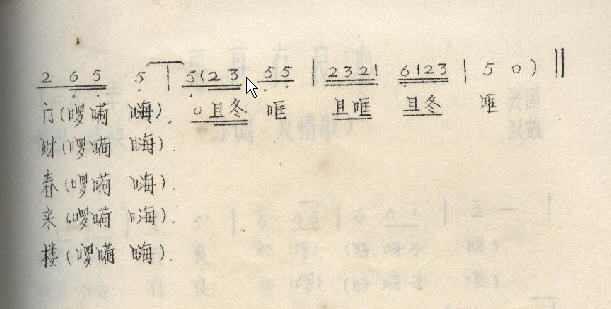 2 6 5 5 | 5(2 3 5 5 | 2 3 2 1 6 1 2 3 | 5 0) ‖
门(啰嗬 嗨). 0 且冬 哐 且哐 且冬 哐
财(啰嗬 嗨).
春(啰嗬 嗨).
来(啰嗬 嗨).
楼(啰嗬 嗨).